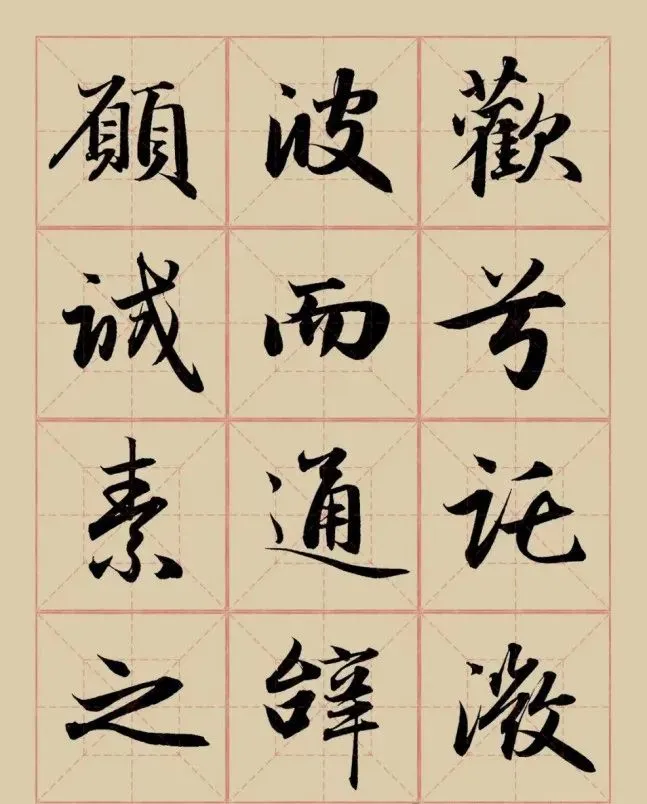 歡兮託微
波而通辝
願誠素之